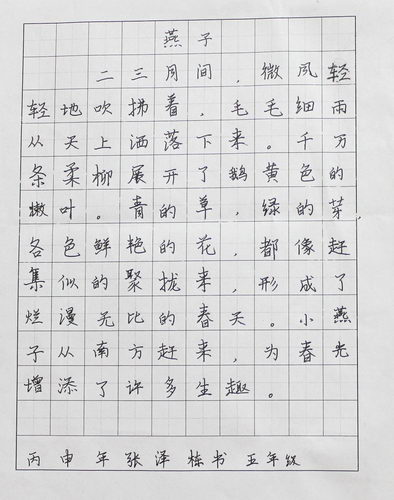 燕子
二三月间，微风轻
轻地吹拂着，毛毛细雨
从天上洒落下来。千万
条柔柳展开了鹅黄色的
嫩叶。青的草，绿的芽，
各色鲜艳的花，都像赶
集似的聚拢来，形成了
烂漫无比的春天。小燕
子从南方赶来，为春光
增添了许多生趣。
丙申年张泽栋书五年级